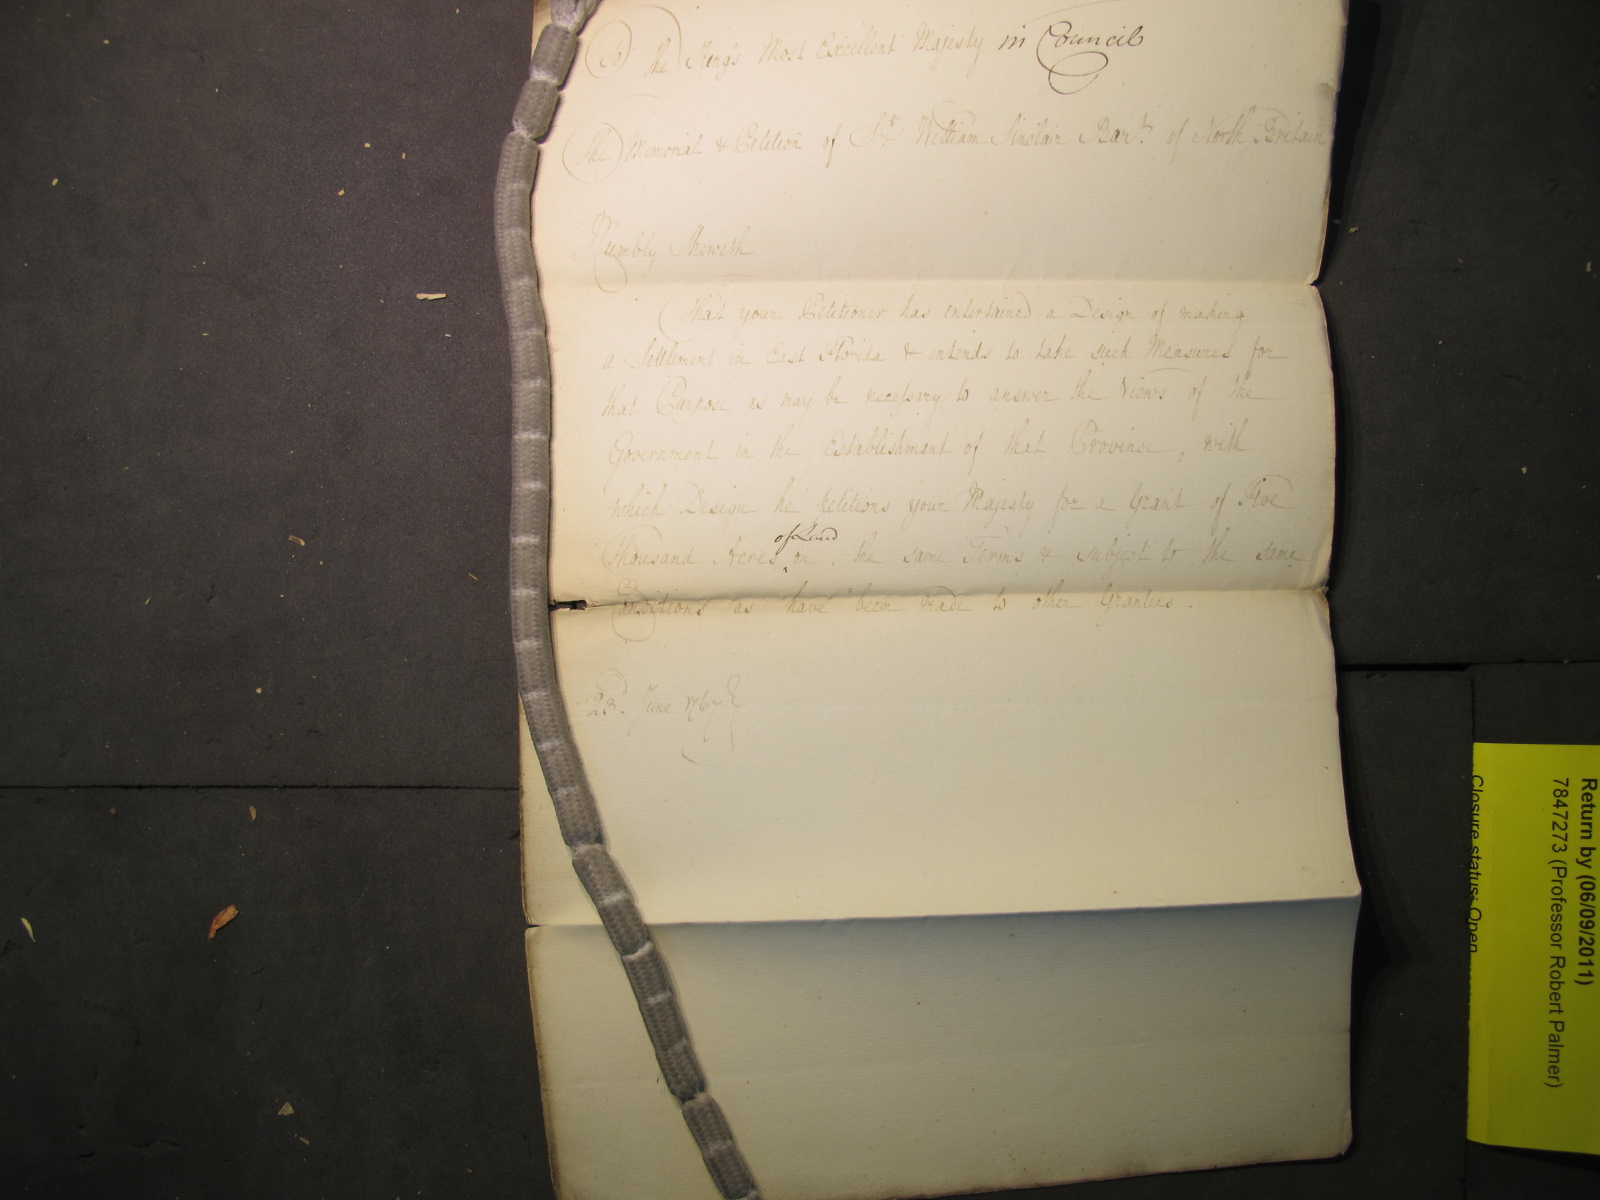 To the King's Most Excellent Majesty in Council
The Memorial & Petition of Sr. William Sinclair Bart. of North Britain
Humbly Sheweth
That your Petitioner has entertained a Design of making
a Settlement in East Florida & intends to take such Measures for
that Purpose as may be necessary to answer the Views of the
Government in the Establishment of that Province, with
which Design he petitions your Majesty for a Grant of Five
Thousand Acres of Land on the same Terms & subject to the same
Conditions as have been made to other Grantees.
23d. June
Return by (06/09/2011)
7847273 (Professor Robert Palmer)
Closure status: Open